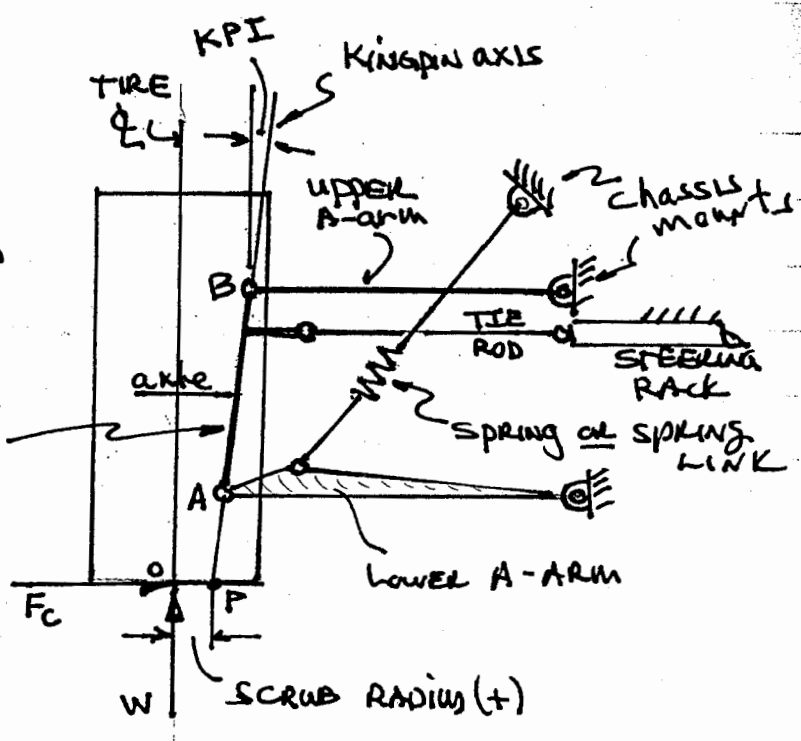 KPI
KINGPIN AXIS
TIRE
℄
UPPER
A-arm
chassis
mounts
B
TIE
ROD
STEERING
RACK
axle
SPRING or SPRING
LINK
A
LOWER A-ARM
O
P
Fc
SCRUB RADIUS (+)
W